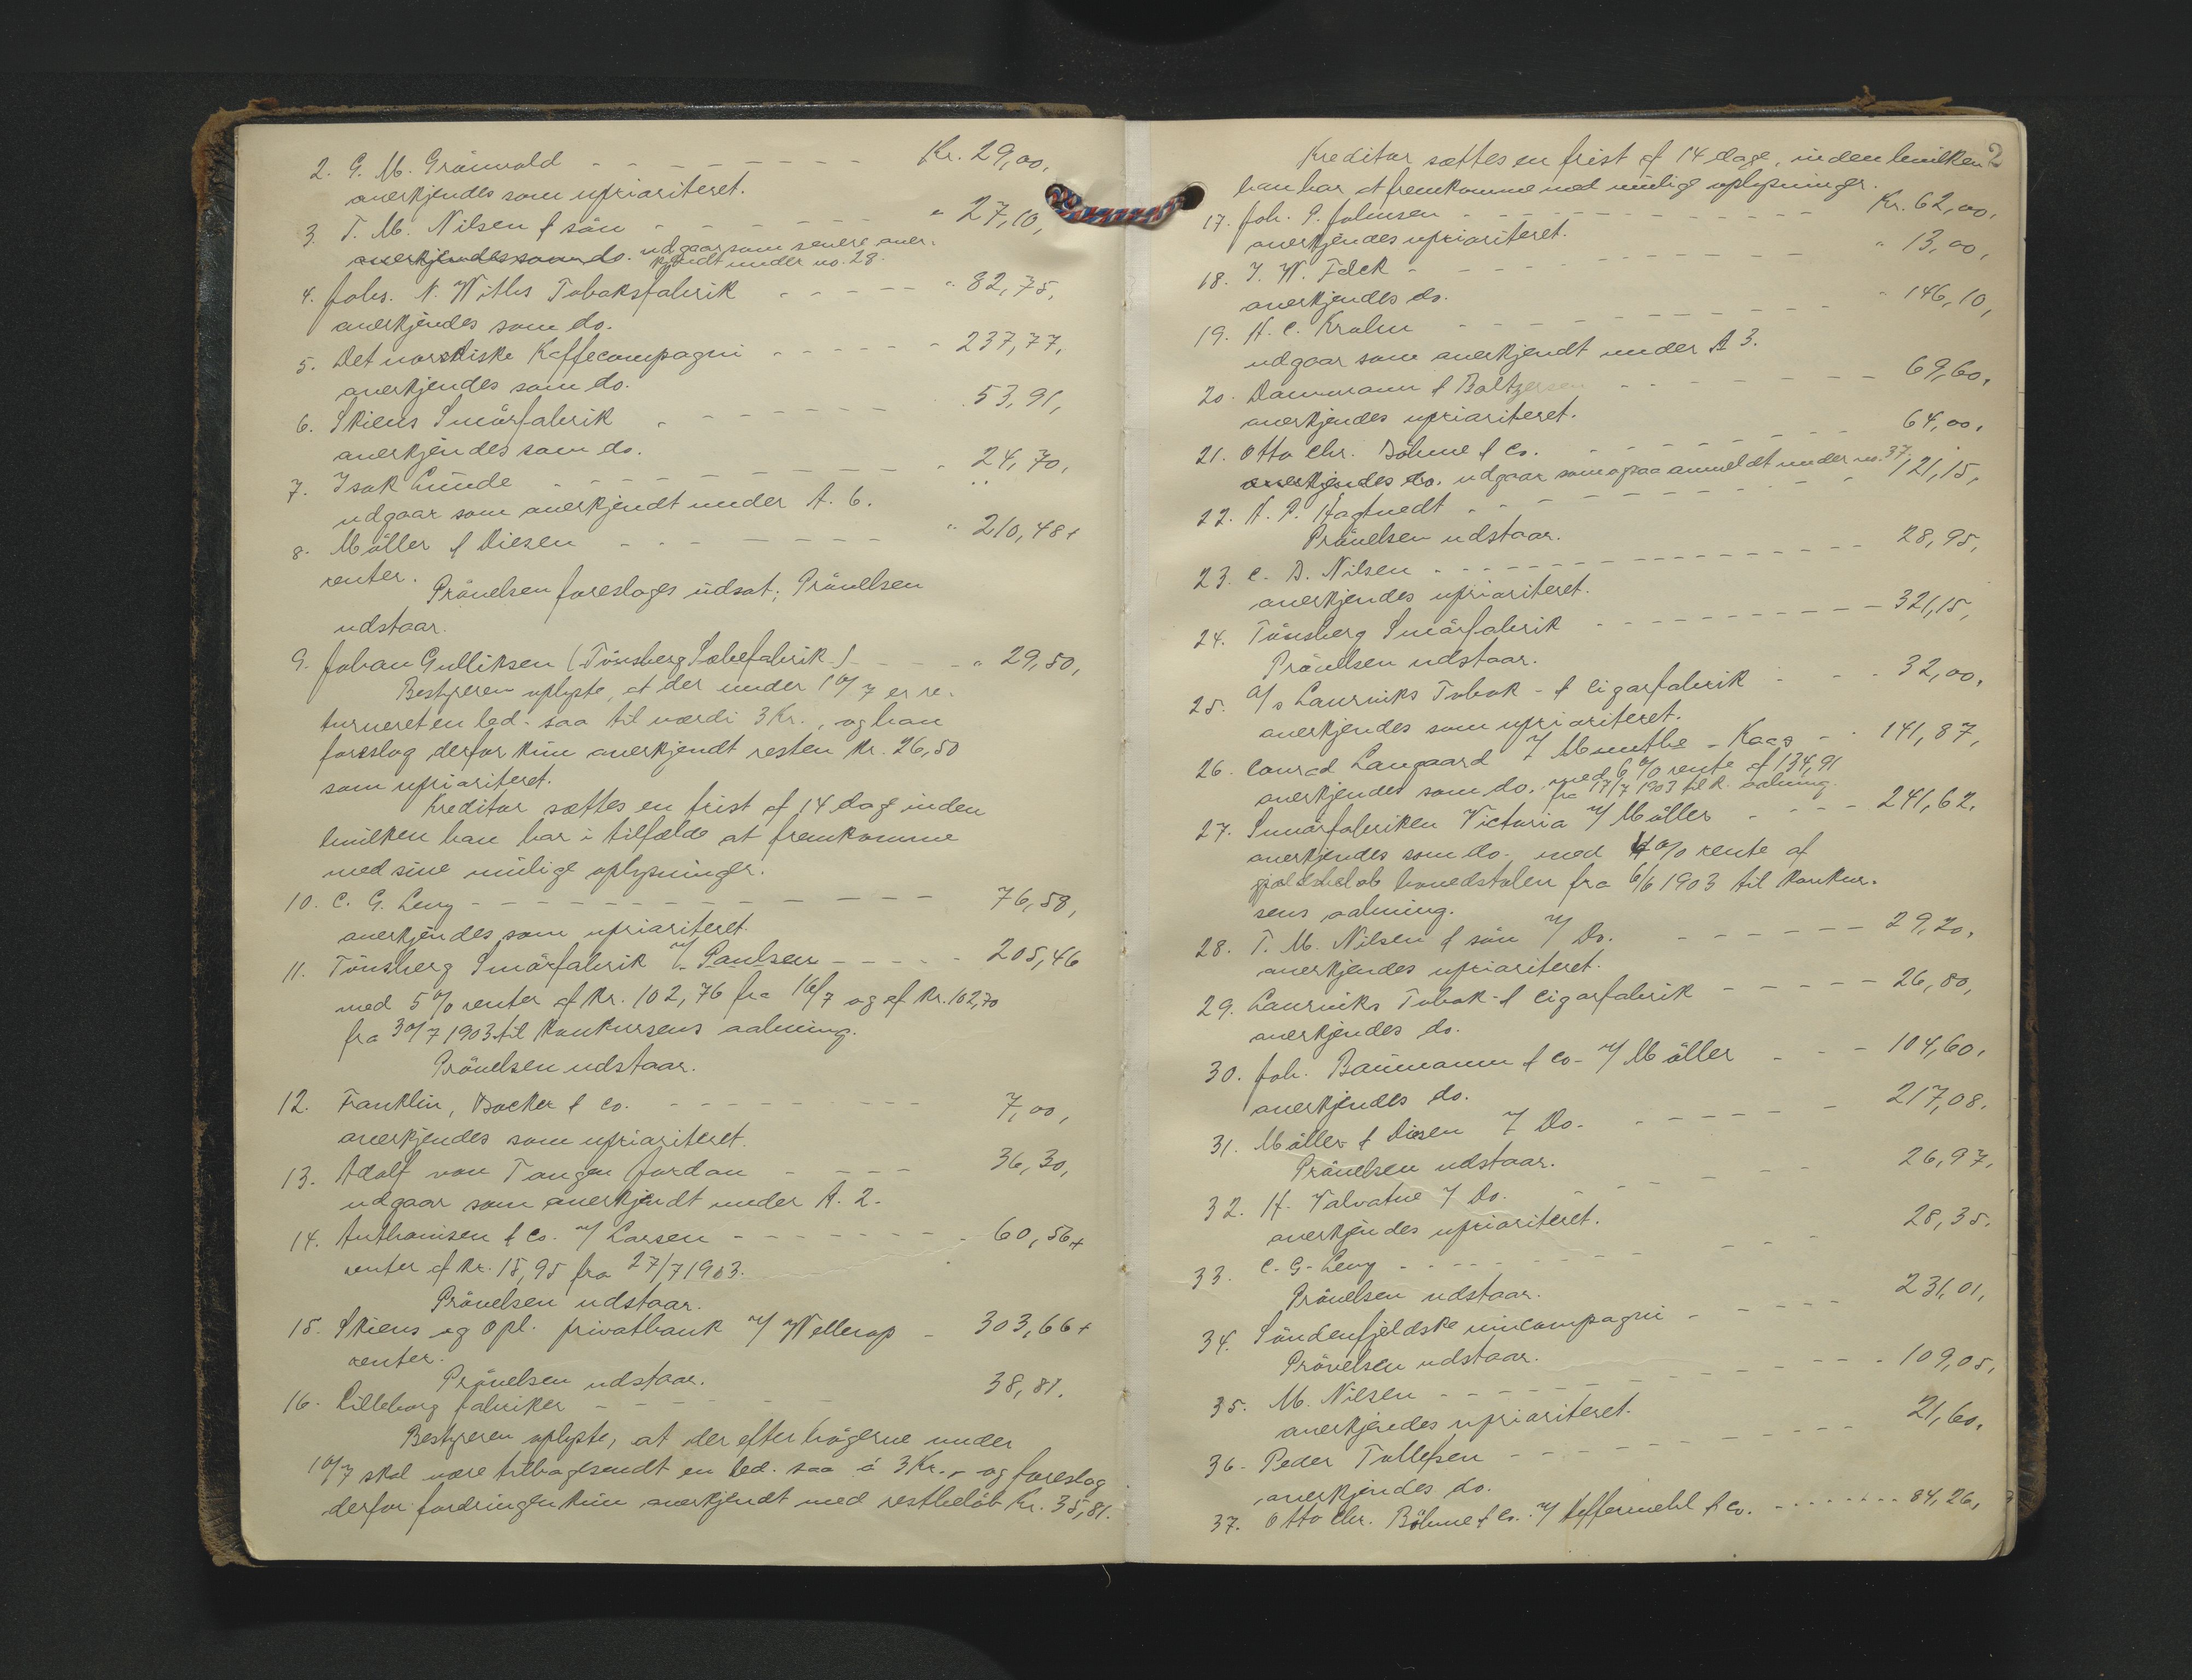 2. G. M. Grönvold - - - - - - - - - Kr. 29,00,
anerkjendes som uprioriteret.
3. T. M. Nilsen & sön - - - - - - " 27,10,
anerkjendes som do. udgaar som senere aner-
kjendt under no. 28.
4. Johs. N. Withs Tobaksfabrik - - - - - " 82,75,
anerkjendes som do.
5. Det norskiske Kaffecompagni - - - - - - 237,77,
anerkjendes som do.
6. Skiens Smörfabrik - - - - - - 53,91,
anerkjendes som do.
7. Isak Lunde - - - - - - - - 24,70,
udgaar som anerkjendt under A. 6.
8. Möller & Diesen - - - - - - - " 210,48+
renter.
Prövelsen foreslages udsat; Prövelsen
udstaar.
9. Johan Gulliksen (Tönsberg Sæbefabrik) - - - - " 29,50,
Bestyreren oplyste, at der under 10/7 er re-
turneret en led. saa til værdi 3 Kr., og han
foreslog derfor kun anerkjendt resten Kr. 26,50
som uprioriteret.
Kreditor sættes en frist af 14 dag inden
hvilken han har i tilfælde at fremkomme
med sine mulige oplysninger.
10. C. G. Levy - - - - - - - - - - - 76,58,
anerkjendes som uprioriteret.
11. Tönsberg Smörfabrik v/ Paulsen - - - - - 205,46
med 5% renter af Kr. 102,76 fra 16/7 og af Kr. 102,70
fra 30/7 1903 til konkursens aabning.
Prövelsen udstaar.
12. Franklin, Bocker & Co. - - - - - - - - 7,00,
anerkjendes som uprioriteret.
13. Adolf von Tangen Jordan - - - - 36,30,
udgaar som anerkjendt under A. 2.
14. Anthonisen & Co. v/ Larsen - - - - - - - 60,56+
renter af Kr. 15,95 fra 27/7 1903.
Prövelsen udstaar.
15. Skiens og Opl. privatbank v/ Wellerop - 303,66+
renter.
Prövelsen udstaar.
16. Lilleborg fabriker - - - - - - 38,81.
Bestyreren oplyste, at der efter bögerne under
10/7 skal være tilbagesendt en led. saa á 3 Kr., og foreslog
derfor fordringen kun anerkjendt med restbelöb Kr. 35,81.
2
Kreditor sættes en frist af 14 dage, inden hvilken
han har at fremkomme med mulige oplysninger.
17. Joh. P. Johnsen - - - - - - - - - Kr. 62,00,
anerkjendes uprioriteret.
18. J. W. - - - - - - - - " 13,00,
anerkjendes do.
19. H. C. Krohn - - - - - - - - - " 146,10,
udgaar som anerkjendt under A 3.
20. Dammann & Baltzersen - - - - - - - 69,60,
anerkjendes uprioriteret.
21. Otto Chr. Böhme & Co. - - - - - - - 64,00,
anerkjendes do. udgaar som ogsaa anmeldt under no. 37.
22. N. P. Hagtvedt - - - - - - - - - 121,15,
Prövelsen udstaar.
23. C. D. Nilsen - - - - - - - - - - - 28,95,
anerkjendes uprioriteret.
24. Tönsberg Smörfabrik - - - - - - - - - 321,15,
Prövelsen udstaar.
25. A/s Laurviks Tobak- & Cigarfabrik - - - 32,00,
anerkjendes som uprioriteret.
26. Conrad Langaard v/ Munthe-Kaas - - 141,87,
anerkjendes som do. med 6% rente af 134,91
fra 17/7 1903 til k. aabning.
27. Smörfabriken Victoria v/ Möller - - - - 241,62,
anerkjendes som do. med 4% rente af
gjældsbelöb hovedstolen fra 6/6 1903 til konkur-
sens aabning.
28. T. M. Nilsen & sön v/ Do. - - - - - - 29,20,
anerkjendes uprioriteret.
29. Laurviks Tobak- & Cigarfabrik - - - - - 26,80,
anerkjendes do.
30. Joh. Baumann & Co. v/ Möller - - - 104,60,
anerkjendes do.
31. Möller & Diesen v/ Do. - - - - - - 217,08,
Prövelsen udstaar.
32. H. Valvatne v/ Do. - - - - - - 26,97,
anerkjendes uprioriteret.
33. C. G. Levy - - - - - - - - - 28,35,
Prövelsen udstaar.
34. Söndenfjeldske vincompagni - - - - - 231,01,
Prövelsen udstaar.
35. M. Nilsen - - - - - - - - - - 109,05,
anerkjendes uprioriteret.
36. Peder Tollefsen - - - - - - - - - 21,60,
anerkjendes do.
37. Otto Chr. Böhme & Co. v/ Heffermehl & Co. - - - - - - 84,26,